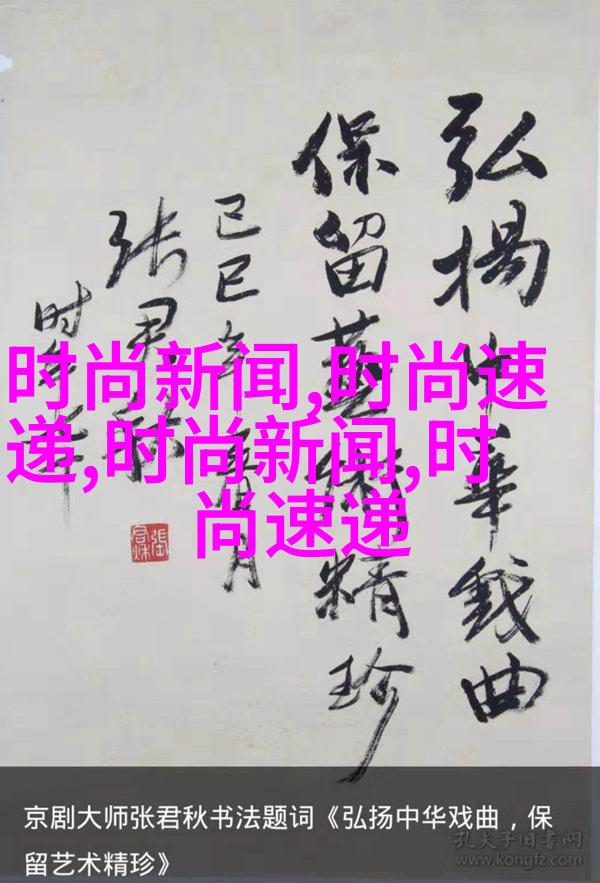 弘揚中華戲曲
保留藝術精珍
己巳年
月
张君秋
时年
張君秋
时尚新闻,时尚速
递,时尚新闻,时
尚速递
京剧大师张君秋书法题词《弘扬中华戏曲，保
留艺术精珍》
孔夫子旧书网
www.kongfz.com